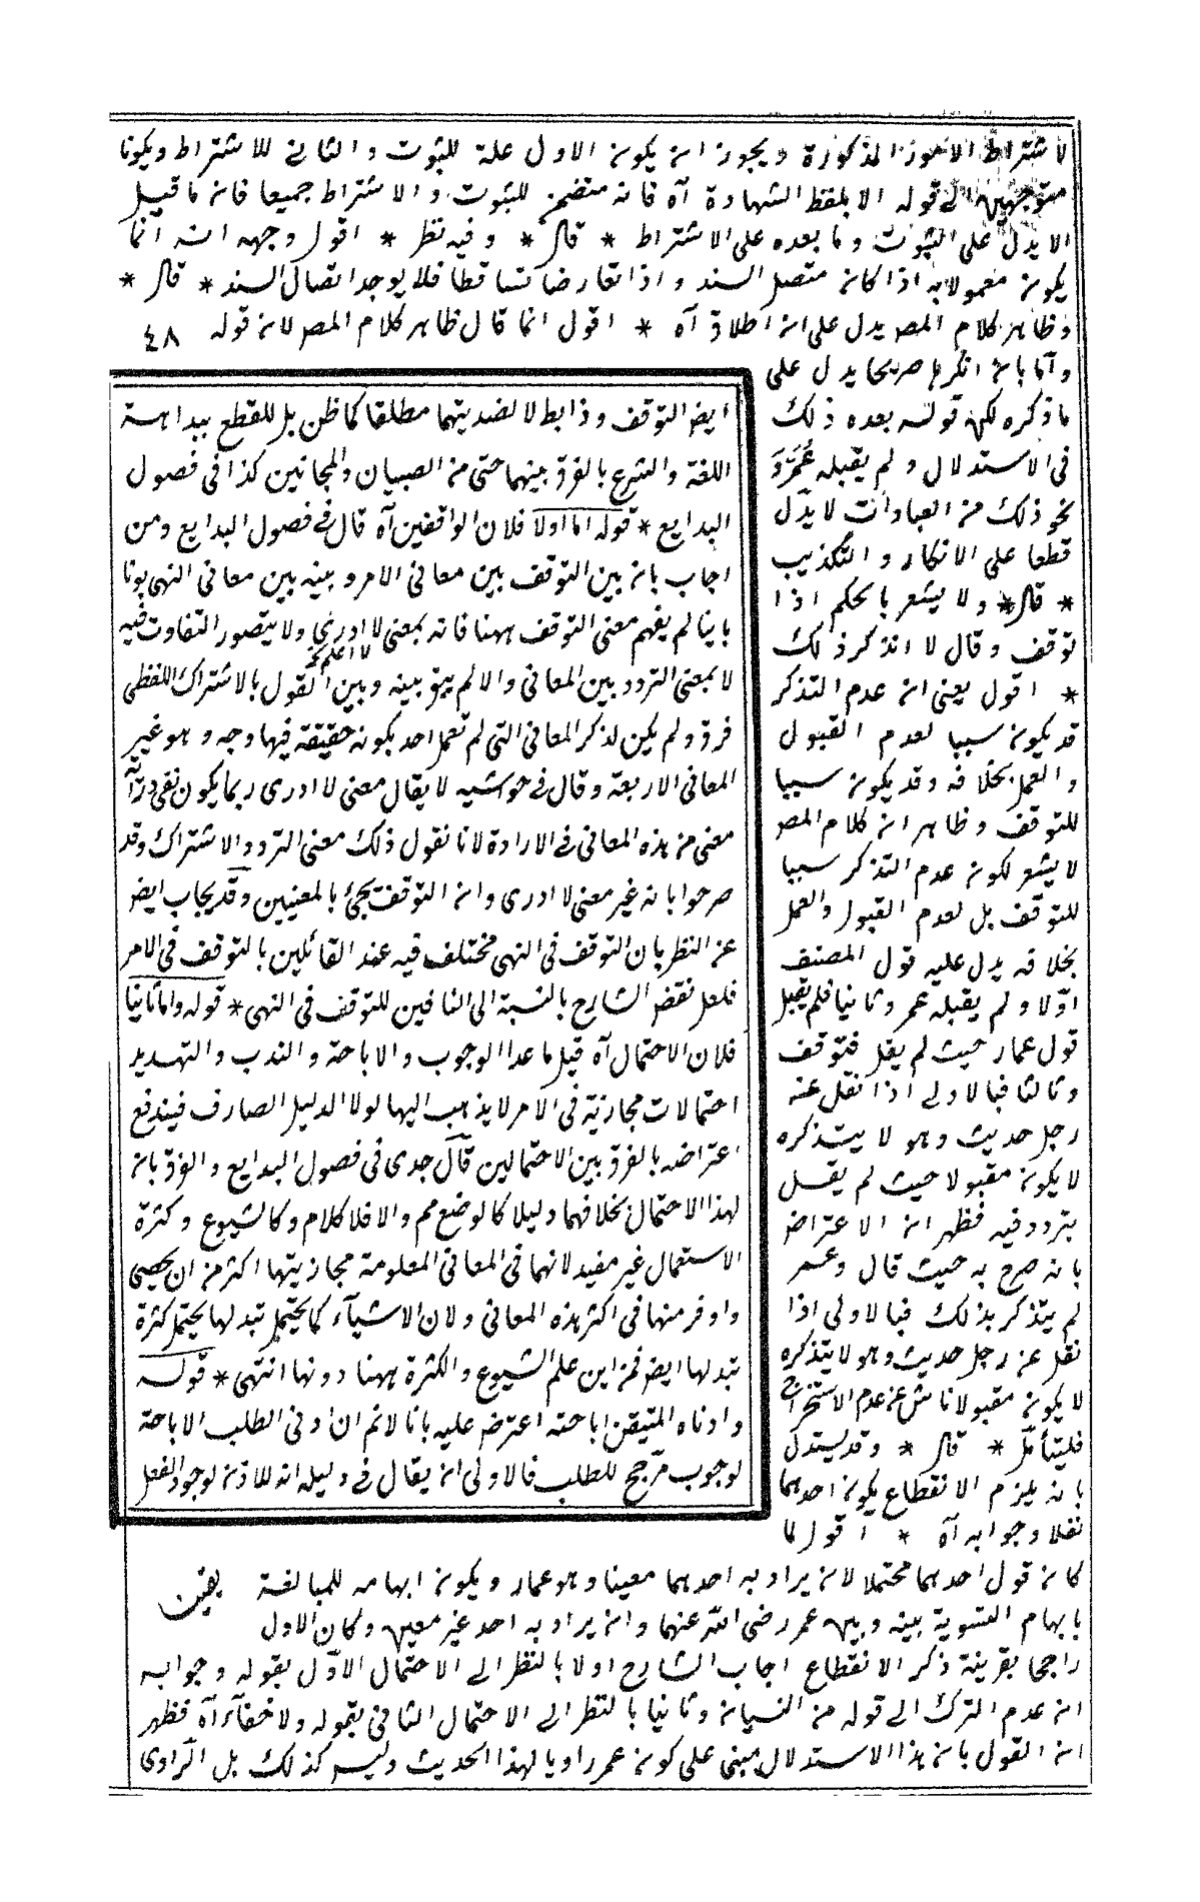 لاشتراط الامور المذكورة ويجوز ان يكون الاول علة للثبوت والثانى للاشتراط ويكونا
متوجهين الى قوله الا بلفظ الشهادة آه فانه متضمن للثبوت والاشتراط جميعا فان ما قبل
الا يدل على الثبوت وما بعده على الاشتراط * قال * وفيه نظر * اقول وجهه انه انما
يكون معمولا به اذا كان متصل السند واذا تعارضا تساقطا فلا يوجد اتصال السند * قال *
وظاهر كلام المص يدل على ان اطلاق آه * اقول انما قال ظاهر كلام المص لان قوله ٤٨
واما بان انكرها صريحا يدل على
ما ذكره لكن قوله بعده ذلك
فى الاستدلال ولم يقبله عمر و
نحو ذلك من العبارات لا يدل
قطعا على الانكار والتكذيب
* قال * ولا يشعر بالحكم اذا
توقف وقال لا اتذكر ذلك
* اقول يعنى ان عدم التذكر
قد يكون سببا لعدم القبول
والعمل بخلافه وقد يكون سببا
للتوقف وظاهر ان كلام المص
لا يشعر لكون عدم التذكر سببا
للتوقف بل لعدم القبول والعمل
بخلافه يدل عليه قول المصنف
اولا ولم يقبله عمر وثانيا فلم يقبل
قول عمار حيث لم يقل فتوقف
وثالثا فبالاولى اذا نقل عنه
رجل حديث وهو لا يتذكره
لا يكون مقبولا حيث لم يقل
يتردد فيه فظهر ان الاعتراض
بانه صرح به حيث قال وعمر
لم يتذكر بذلك فبالاولى اذا
نقل عن رجل حديث وهو لا يتذكره
لا يكون مقبولا ناش عن عدم الاستخراج
فليتأمل * قال * وقد يستدل
بانه يلزم الانقطاع بكون احدهما
نقلا وجوابه آه * اقول لما
كان قول احدهما محتملا لان يراد به احدهما معينا وهو عمار ويكون ابهامه للمبالغة
بابهام التسوية بينه وبين عمر رضى الله عنهما وان يراد به احد غير معين وكان الاول
راجحا بقرينة ذكر الانقطاع اجاب الشارح اولا بالنظر الى الاحتمال الاول بقوله وجوابه
ان عدم الترك الى قوله من النسيان وثانيا بالنظر الى الاحتمال الثانى بقوله ولا خفاء آه فظهر
ان القول بان هذا الاستدلال مبنى على كون عمر راويا لهذا الحديث وليس كذلك بل الراوى
ايض التوقف وذا بط لا لضديتهما مطلقا كما ظن بل للقطع ببداهة
اللغة والشرع بالفرق بينهما حتى من الصبيان والمجانين كذا فى فصول
البدايع * قوله اما اولا فلان الواقفين آه قال فى فصول البدايع ومن
اجاب بان بين التوقف بين معانى الامر وبينه بين معانى النهى بونا
باينا لم يفهم معنى التوقف ههنا فانه بمعنى لا ادرى ولا يتصور التفاوت فيه
لا اعلم
لا بمعنى التردد بين المعانى والا لم يبق بينه وبين القول بالاشتراك اللفظى
فرق ولم يكن لذكر المعانى التى لم تعمل احد بكونه حقيقة فيها وجه وهو غير
المعانى الاربعة وقال فى حواشيه لا يقال معنى لا ادرى ربما يكون نفى دراية
معنى من هذه المعانى فى الارادة لانا نقول ذلك معنى التردد والاشتراك وقد
صرحوا بانه غير معنى لا ادرى وان التوقف يجئ بالمعنيين وقد يجاب ايض
عن النظر بان التوقف فى النهى مختلف فيه عند القائلين بالتوقف فى الامر
فلعل نقض الشارح بالنسبة الى النافين للتوقف فى النهى * قوله واما ثانيا
فلان الاحتمال آه قيل ما عدا الوجوب والاباحة والندب والتهديد
احتمالات مجازية فى الامر لا يذهب اليها لولا الدليل الصارف فيندفع
اعتراضه بالفرق بين الاحتمالين قال جدى فى فصول البدايع والفرق بان
لهذا الاحتمال بخلافهما دليلا كالوضع مم والا فلا كلام وكالشيوع وكثرة
الاستعمال غير مفيد لانهما فى المعانى المعلومة مجازيتها اكثر من ان يحصى
واوفر منها فى اكثر هذه المعانى ولان الاشياء كما يحتمل تبدلها يحتمل كثرة
تبدلها ايض فمن اين علم الشيوع والكثرة ههنا دونها انتهى * قوله
وادناه المتيقن اباحته اعترض عليه بانا لا نم ان ادنى الطلب الاباحة
لوجوب مرجح للطلب فالاولى ان يقال فى دليله انه للاذن لوجود الفعل
بفين